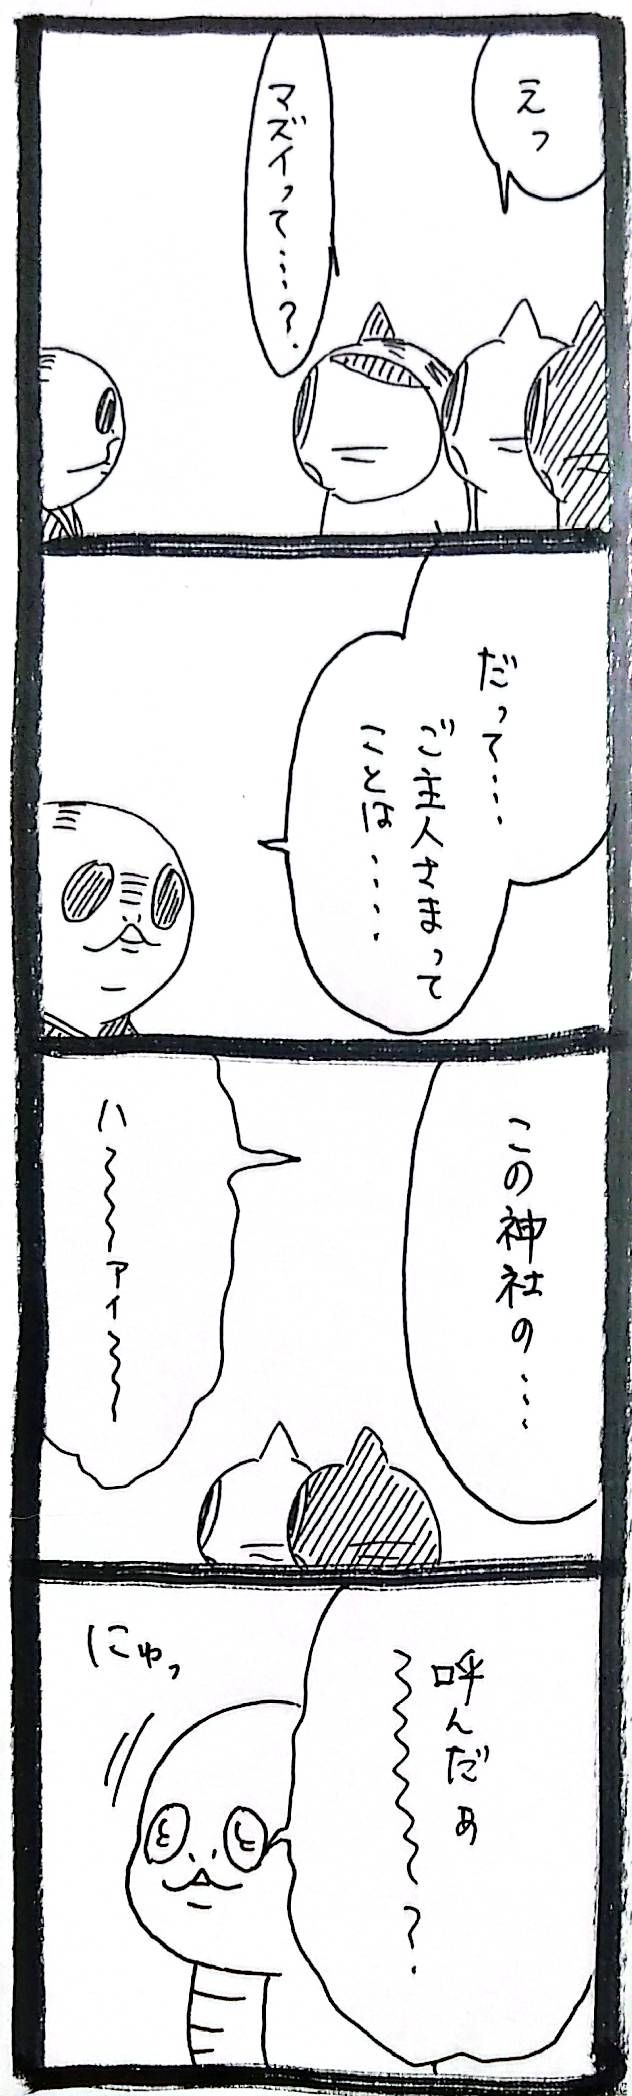 えっ
マズイって…?
だって…
ご主人さまって
ことは‥‥
この神社の…
ハ〜〜〜ァイ〜〜〜
呼んだぁ
〜〜〜〜〜?
にゅっ